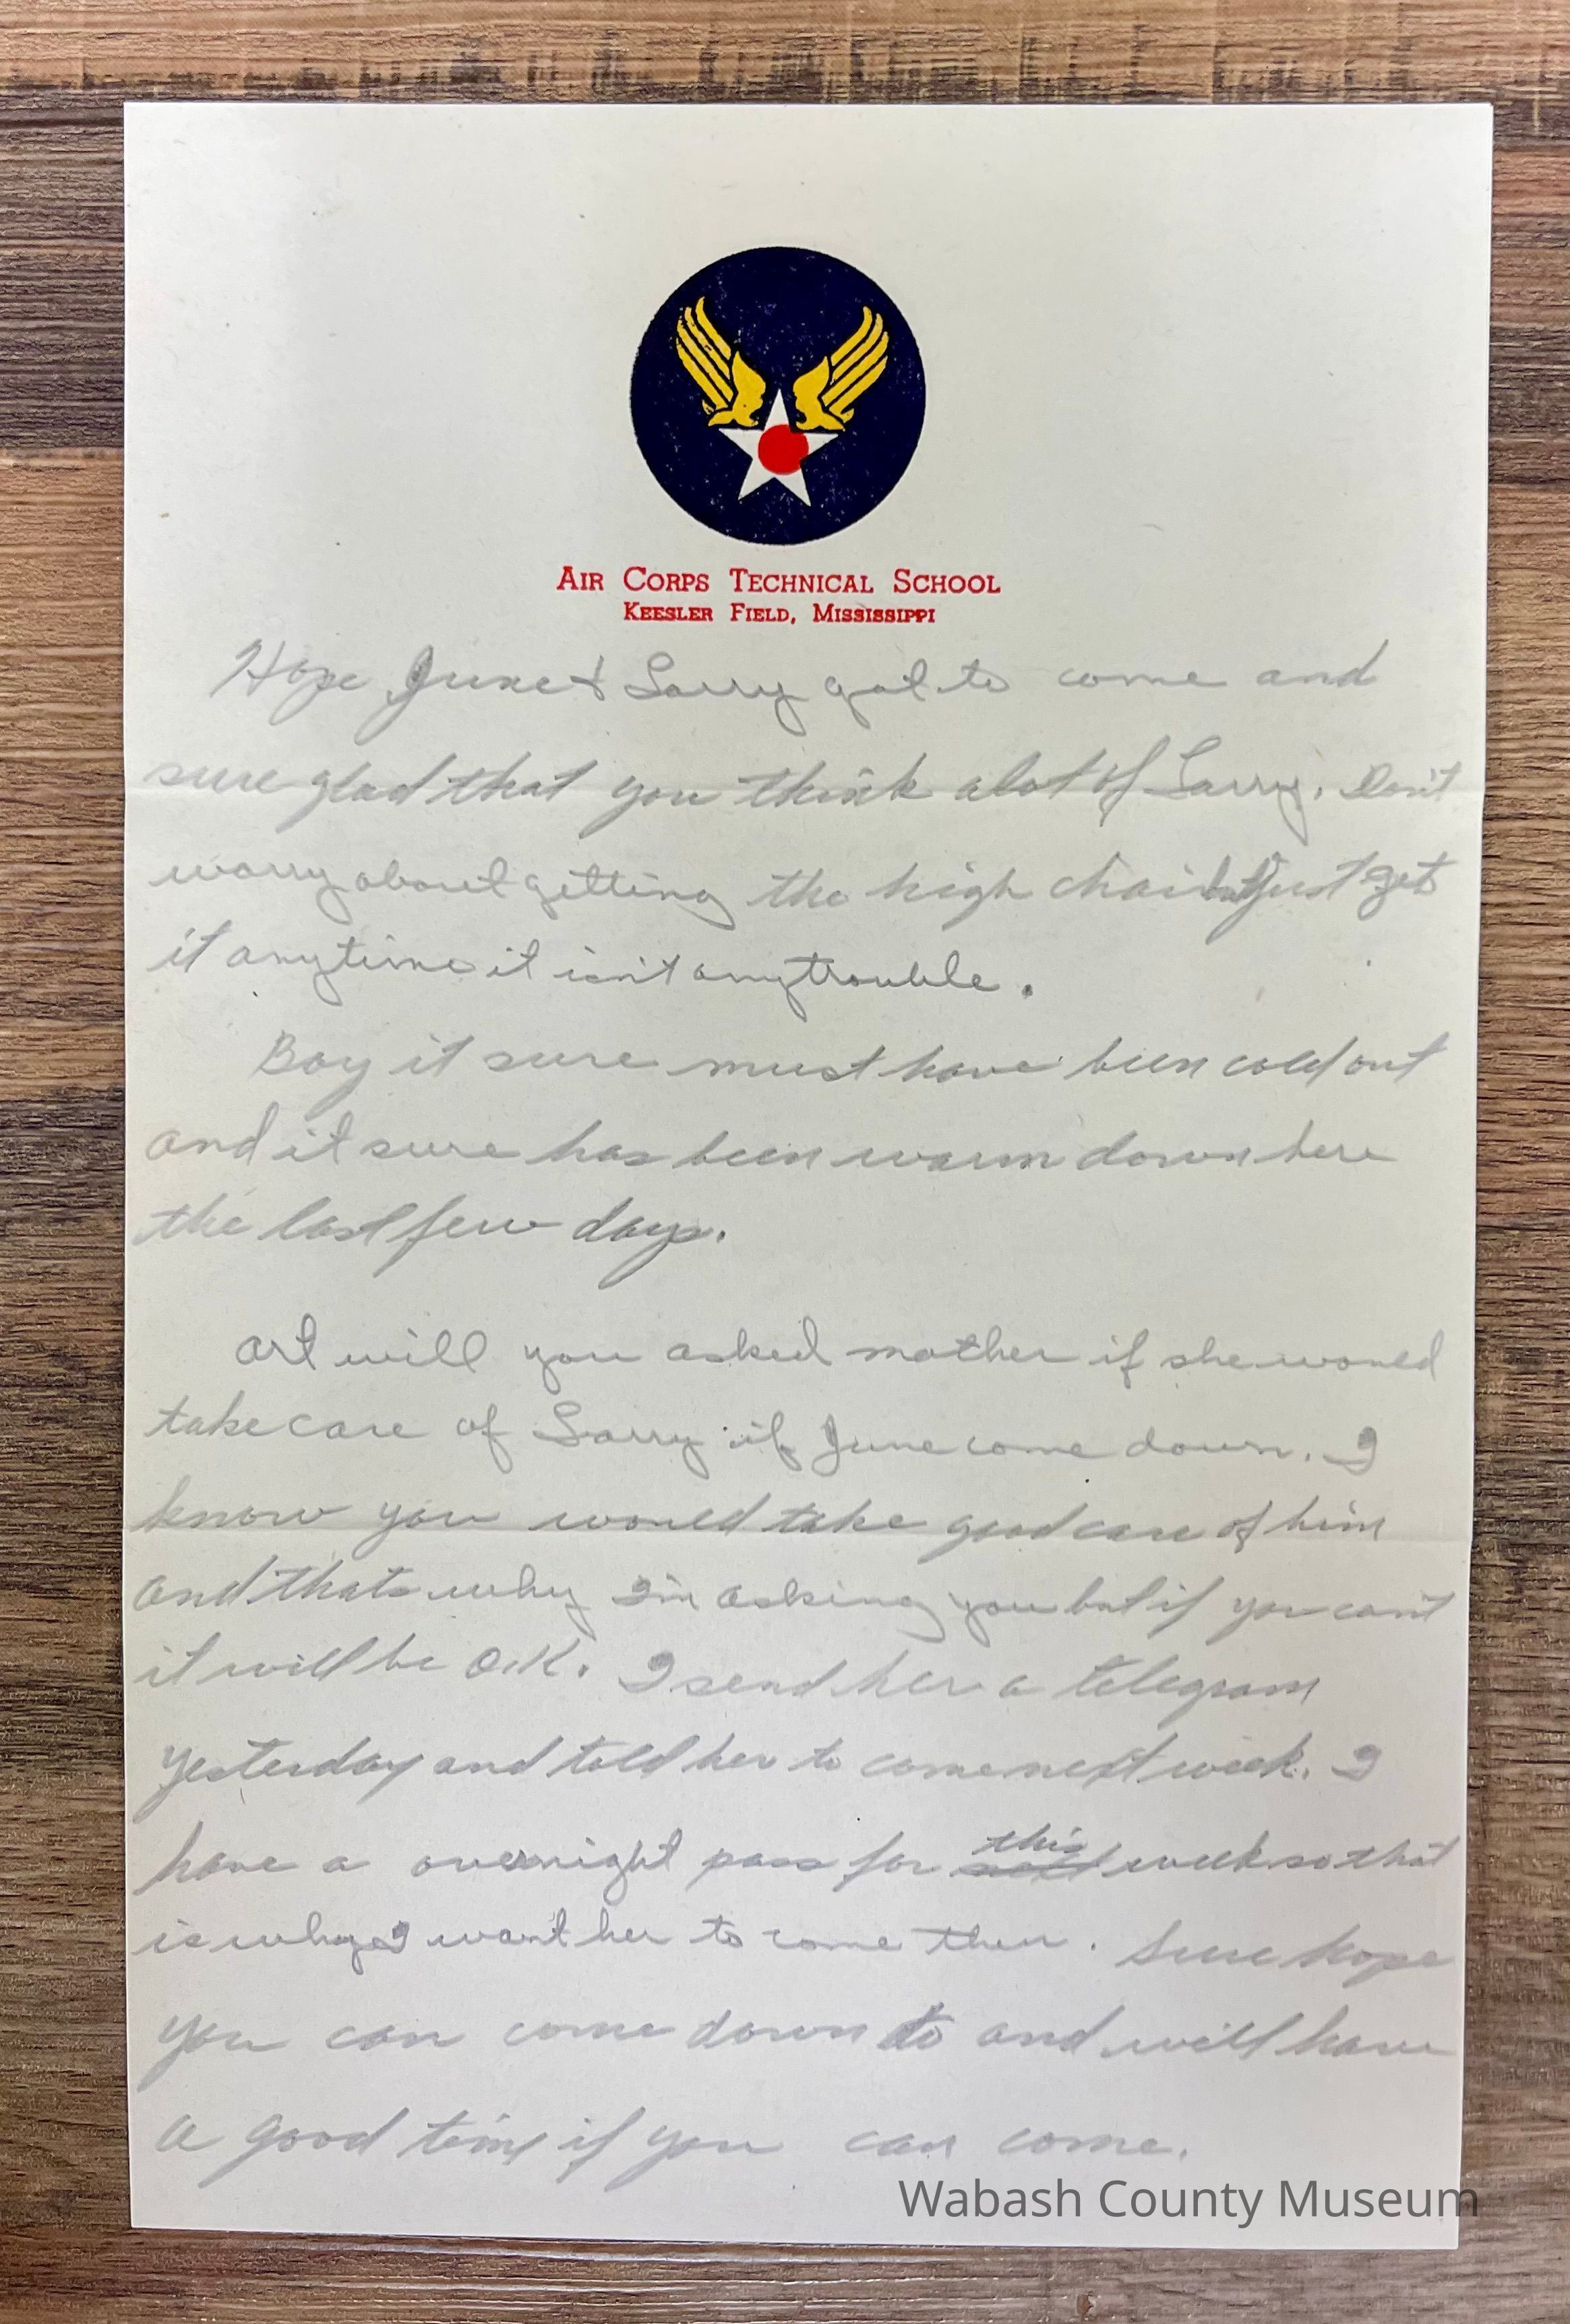 AIR CORPS TECHNICAL SCHOOL
KEESLER FIELD, MISSISSIPPI
Hope June & Larry got to come and
sure glad that you think alot of Larry. Don't
worry about getting the high chair but just get
it anytime it isn't any trouble.
Boy it sure must have been cold out
and it sure has been warm down here
the last few days.
Art will you asked mother if she would
take care of Larry if June come down. I
know you would take good care of him
and thats why I'm asking you but if you can't
it will be O.K. I send her a telegram
yesterday and told her to come next week. I
have a overnight pass for next this week so that
is why I want her to come then. Sure hope
you can come down to and will have
a good time if you can come.
Wabash County Museum